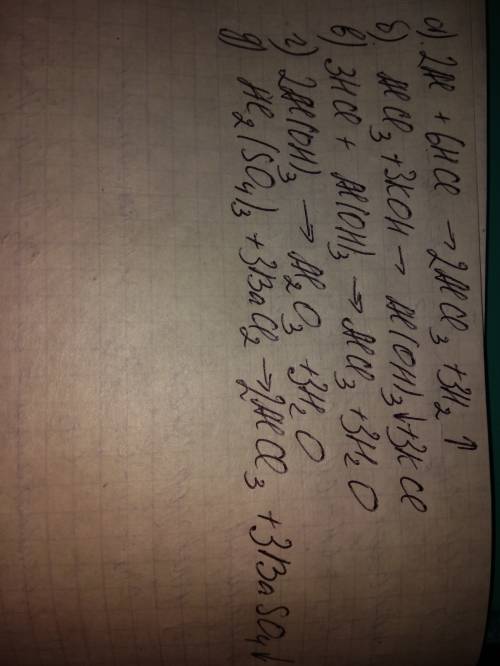 а). 2Al + 6HCl → 2AlCl₃ + 3H₂ ↑
б). AlCl₃ + 3KOH → Al(OH)₃↓ + 3KCl
в) 3HCl + Al(OH)₃ → AlCl₃ + 3H₂O
г) 2Al(OH)₃ → Al₂O₃ + 3H₂O
д) Al₂(SO₄)₃ + 3BaCl₂ → 2AlCl₃ + 3BaSO₄↓